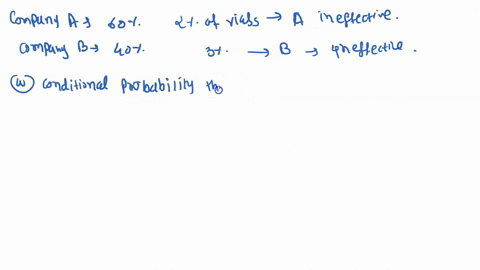 Company A → 60%. 2% of vials → A ineffective.
Company B → 40%. 3%. → B → ineffective.
(w) conditional probability